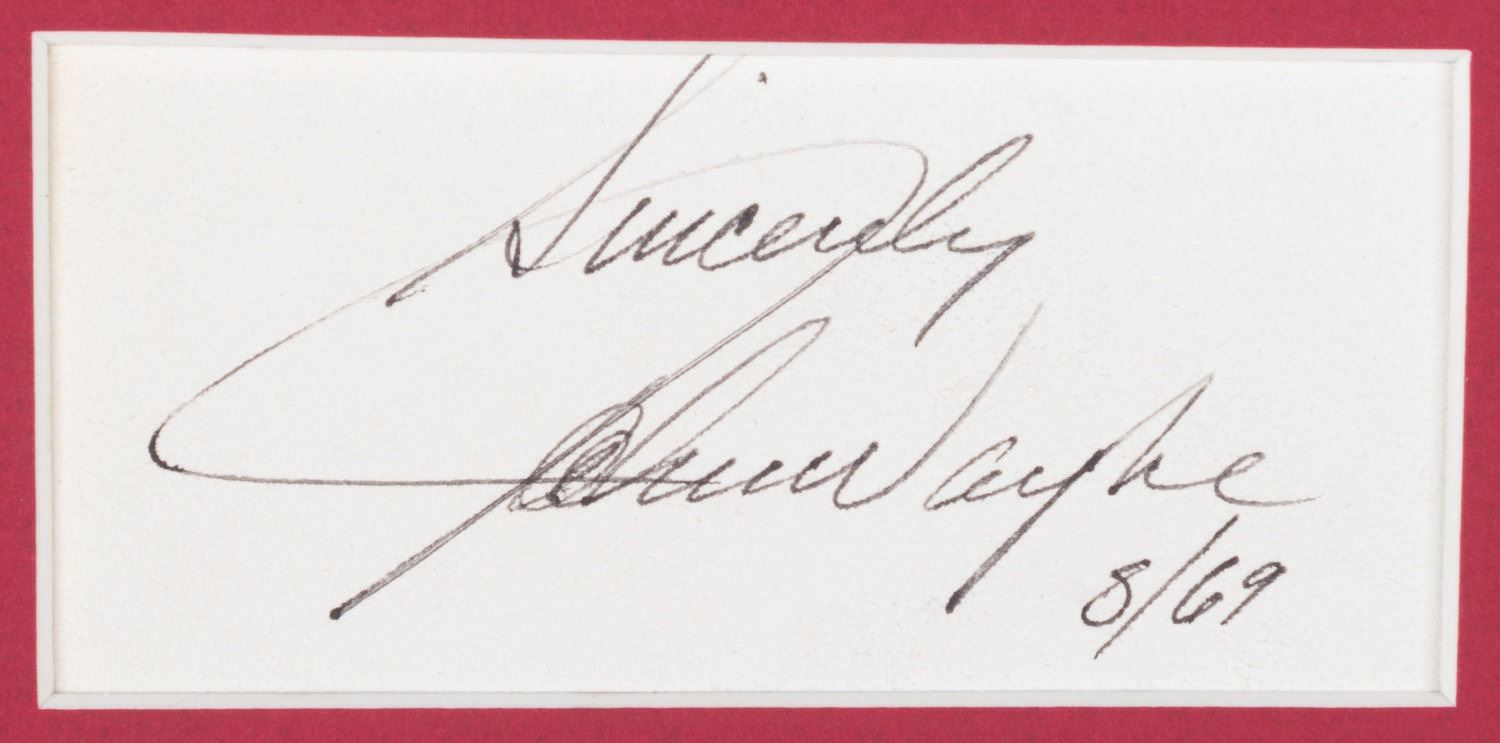 Sincerely
John Wayne
8/69